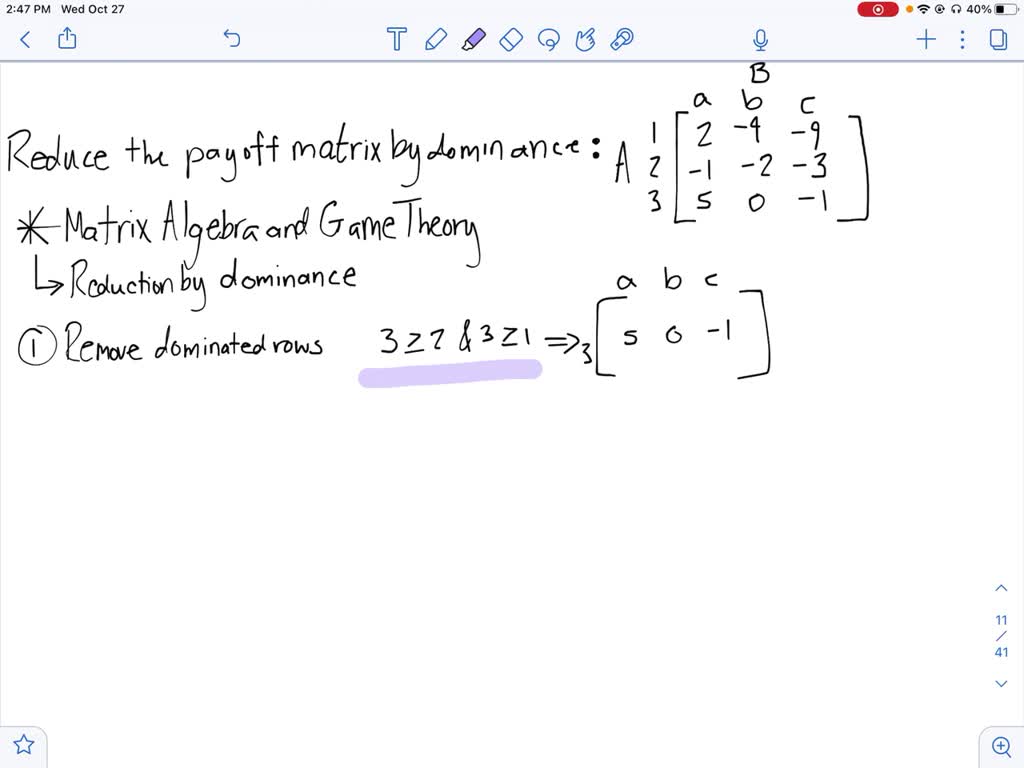 2:47 PM Wed Oct 27
40%
T
B
a b c
Reduce the payoff matrix by dominance : A
1 2 -4 -9
2 -1 -2 -3
3 5 0 -1
* Matrix Algebra and Game Theory
↳ Reduction by dominance
a b c
① Remove dominated rows 3 ≥ 2 & 3 ≥ 1 => 3 [ 5 0 -1 ]
11
/
41